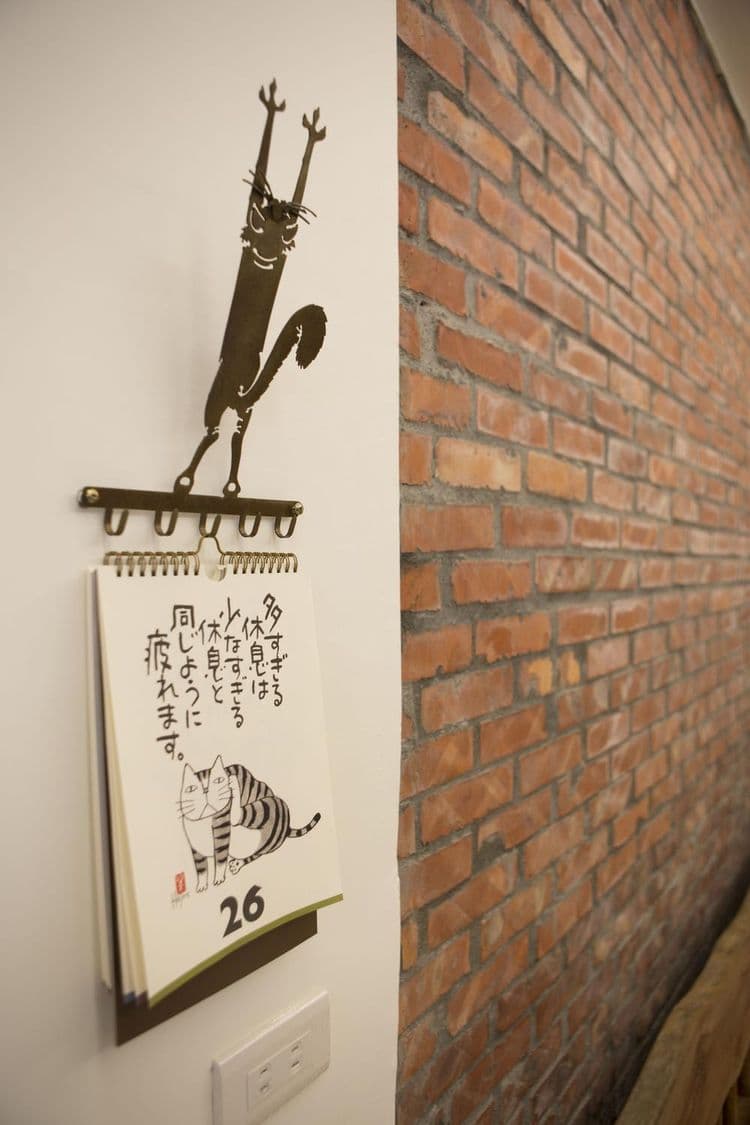 多すぎる
休息は
少なすぎる
休息と
同じように
疲れます。
26